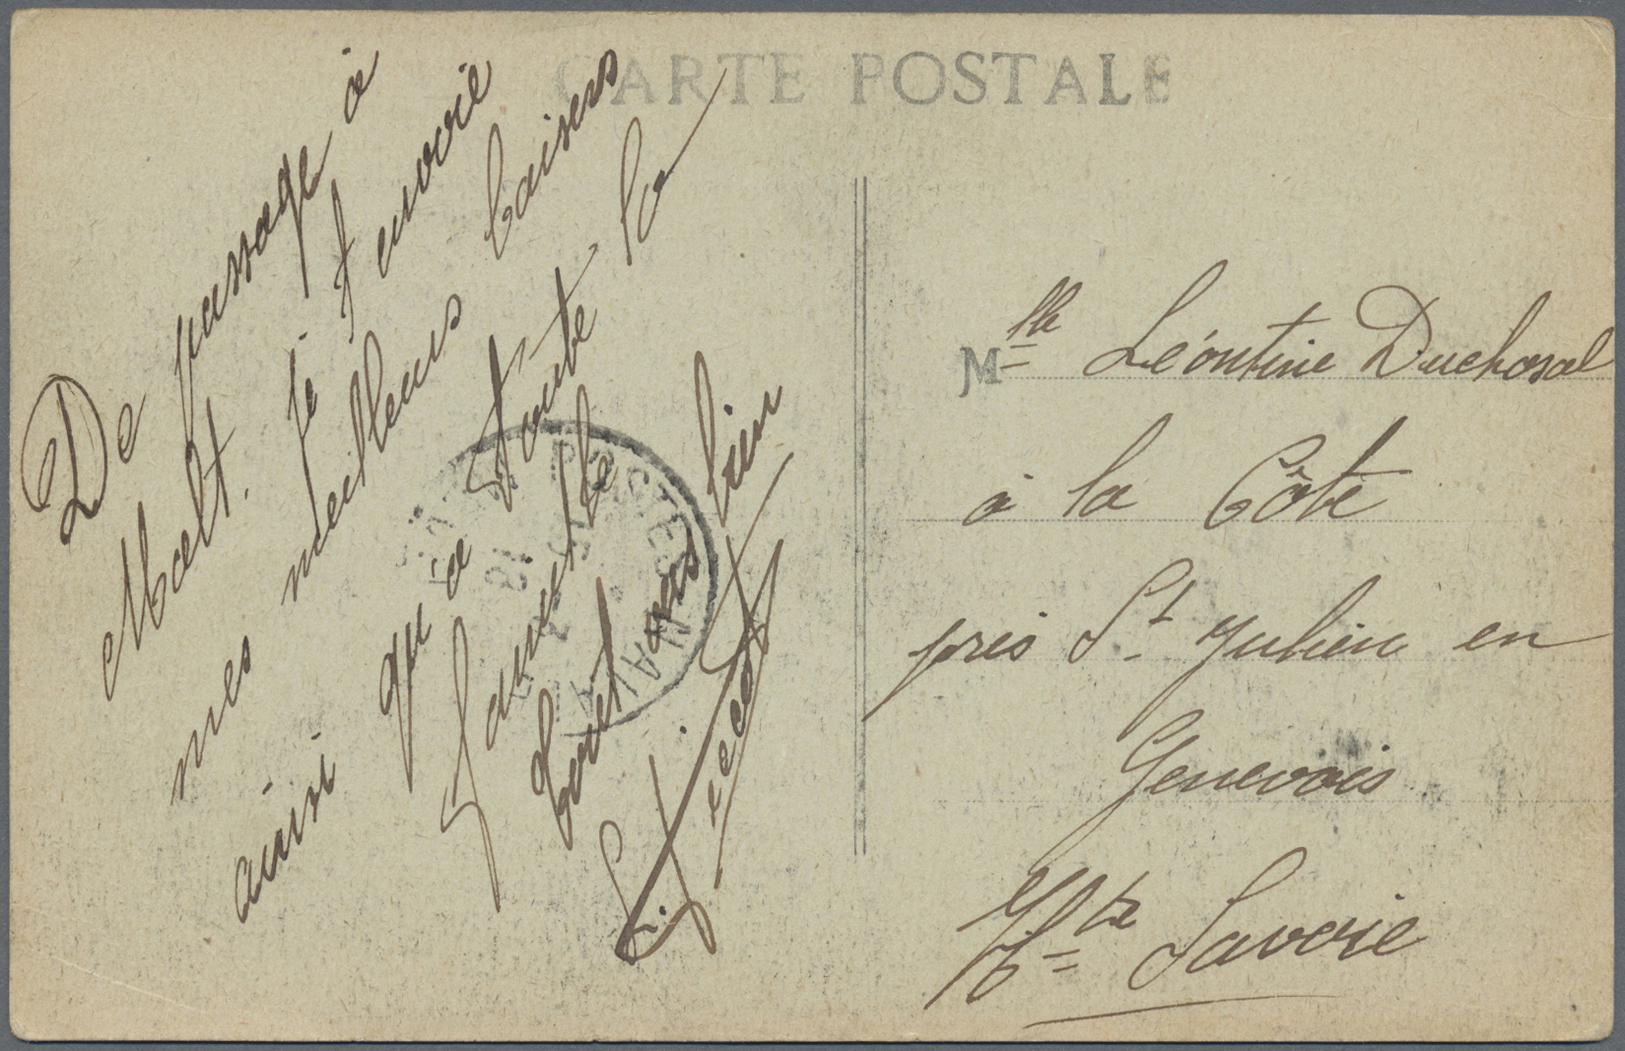 CARTE POSTALE
De passage à
Malt. je t'envoie
mes meilleurs baisers
ainsi qu'à toute la
famille
bien
Mlle Léontine Duchosal
à la Côte
près St Julien en
Genevois
Hte Savoie
POSTES